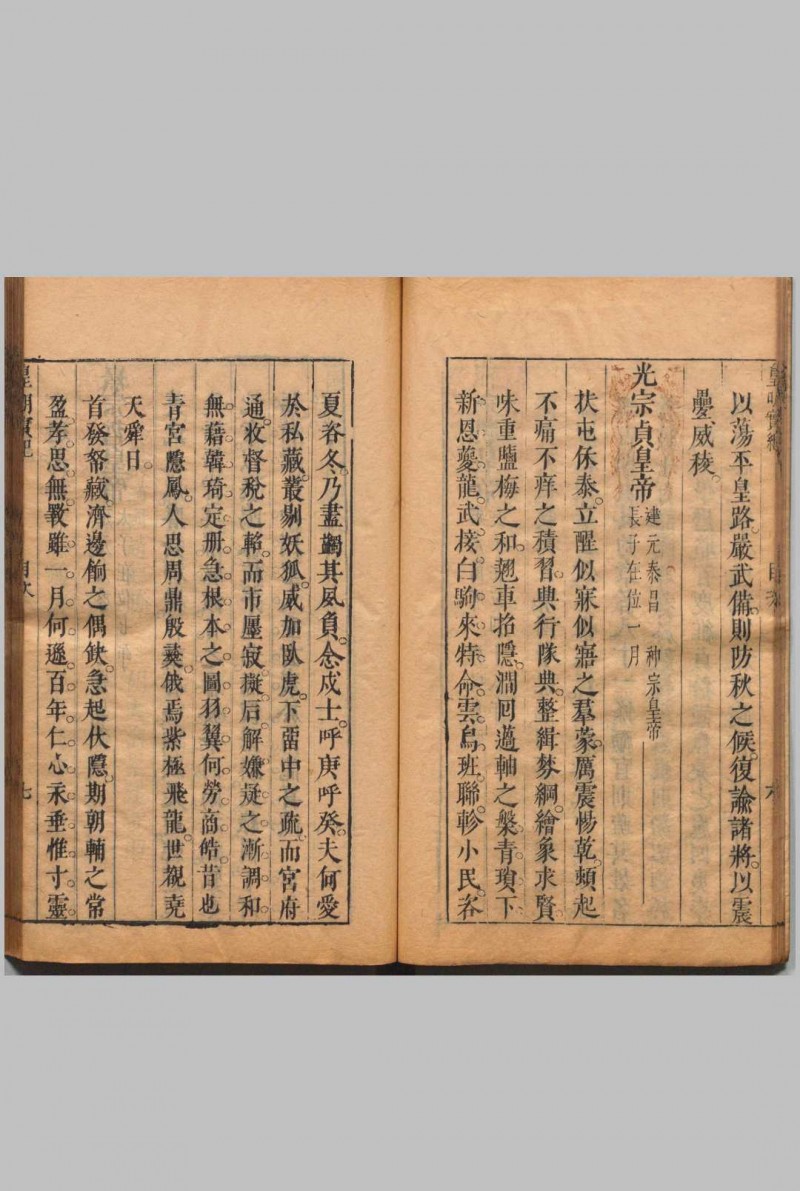 以蕩平皇路。嚴武備。則防秋之候。復諭諸將。以震
疊威稜。
光宗貞皇帝 建元泰昌 神宗皇帝
長子在位一月
扶屯休泰。立醒似寐似寤之羣蒙。厲震惕乾。頓起
不痛不痒之積習。典行隊典。整緝棼綱。繪象求賢
味重鹽梅之和。翹車招隱。澗回薖軸之槃。青瑣下
新恩。夔龍武接。白駒來特命。雲鳥班聯。軫小民。咨
夏咨冬。乃盡蠲其夙負。念戍士。呼庚呼癸。夫何愛
於私藏。叢剔妖狐。威加臥虎。下畱中之疏。而宮府
通。收督稅之軺。而市廛寂擬。后解嫌疑之漸。調和
無藉韓琦。定册急根本之圖。羽翼何勞商皓。昔也
青宮隱鳳。人思周鼎殷彝。俄焉紫極飛龍。世覩堯
天舜日。
首發帑藏。濟邊餉之偶缺。急起伏隱。期朝輔之常
盈。孝思無斁。雖一月何遜百年。仁心永垂。惟寸靈
目次
七